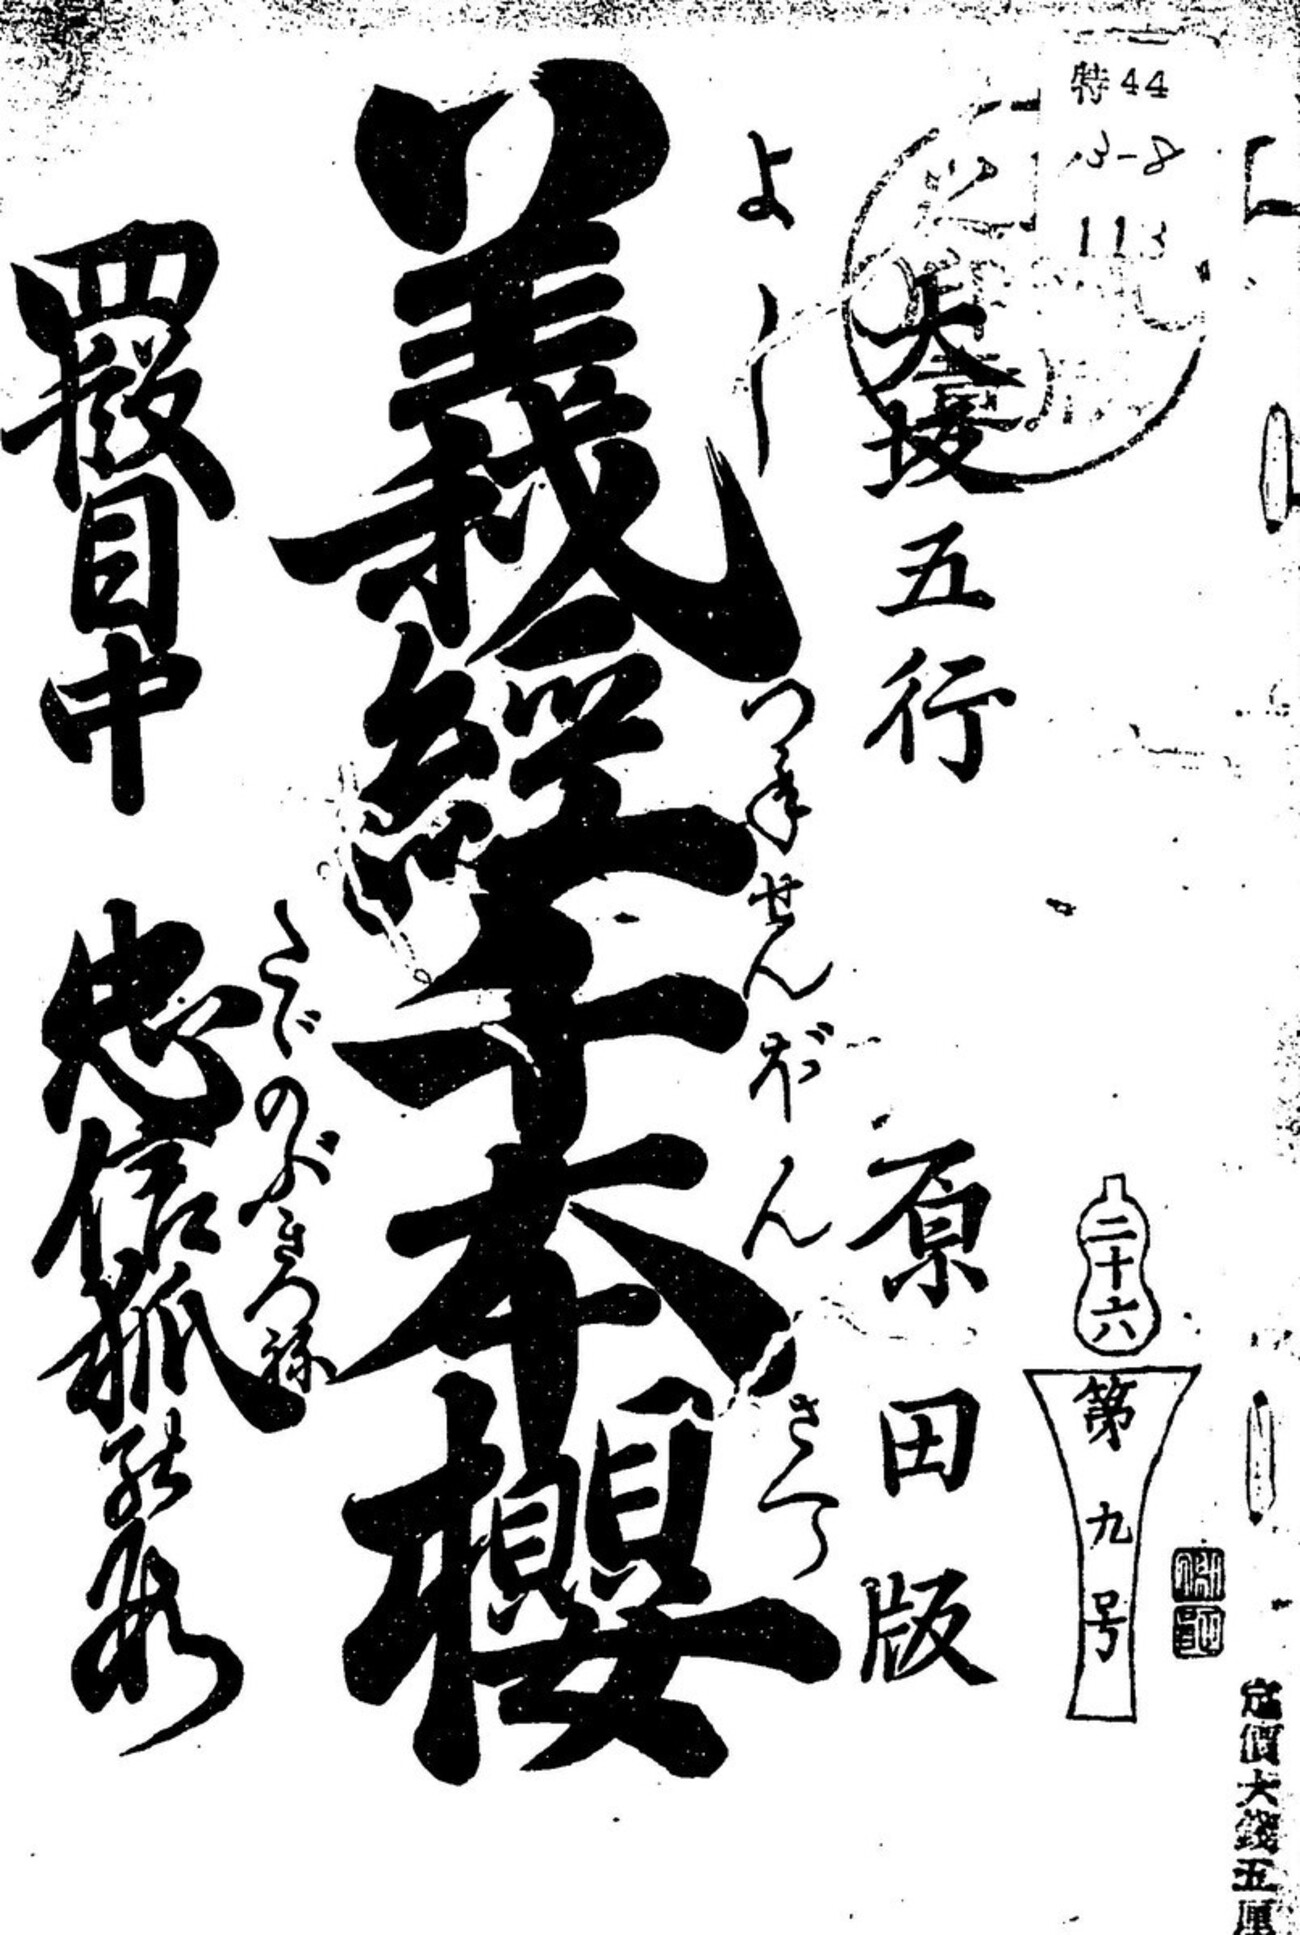 特44
3-8
113
定價六錢五厘
二十六
第九号
大坂五行 原田版
よしつねせんぼんざくら
義經千本櫻
たゞのぶきつね
四段目中 忠信狐の段